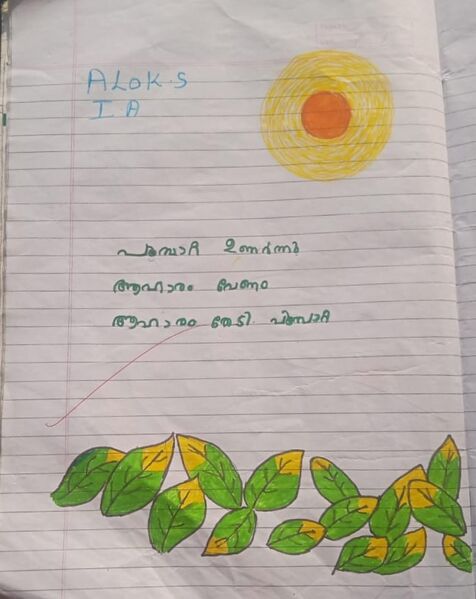 ALOK.S
I A
പൂമ്പാറ്റ ഉണർന്നു
ആഹാരം വേണം
ആഹാരം തേടി പൂമ്പാറ്റ